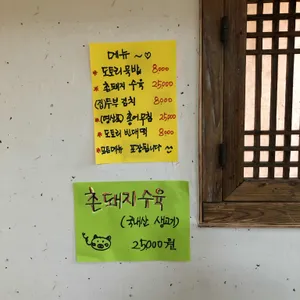 메뉴 ~♡
* 도토리묵밥 8000
* 촌돼지 수육 25000
(김)두부 김치 8000
* (명성표) 홍어무침 25000
* 도토리 빈대떡 8000
* 모든메뉴 포장됩니다
촌돼지수육
(국내산 생고기)
25000원